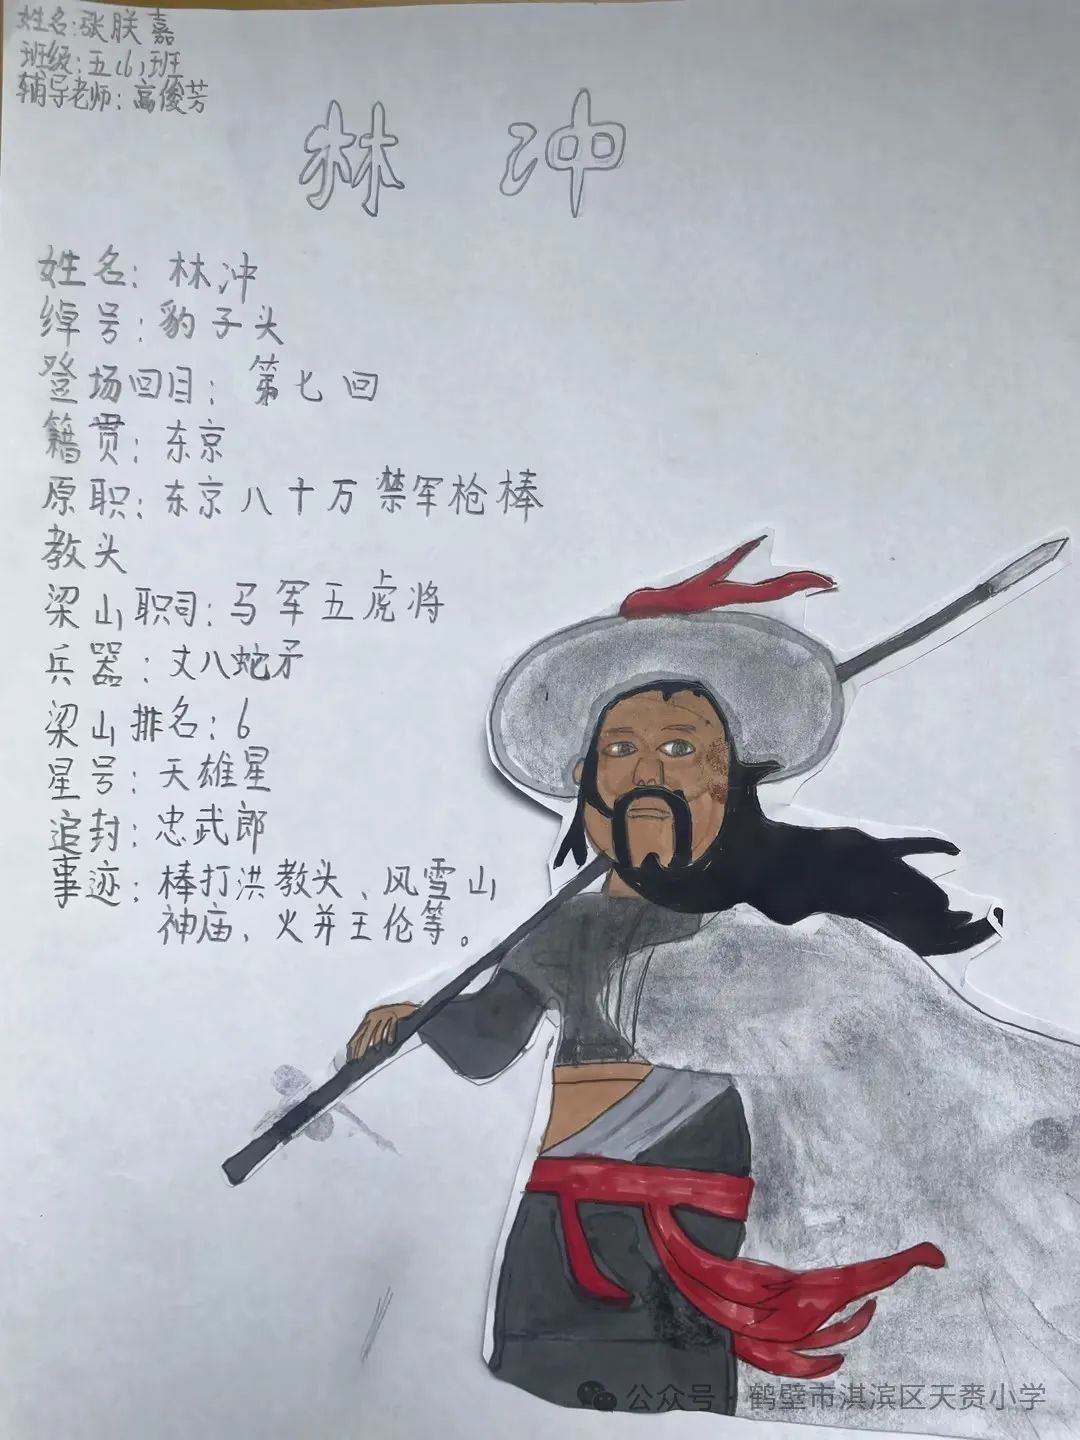 姓名:张朕嘉
班级:五(6)班
辅导老师:高優芳
林 冲
姓名:林冲
绰号:豹子头
登场回目:第七回
籍贯:东京
原职:东京八十万禁军枪棒
教头
梁山职司:马军五虎将
兵器:丈八蛇矛
梁山排名:6
星号:天雄星
追封:忠武郎
事迹:棒打洪教头、风雪山
神庙、火并王伦等。
公众号·鹤壁市淇滨区天赉小学